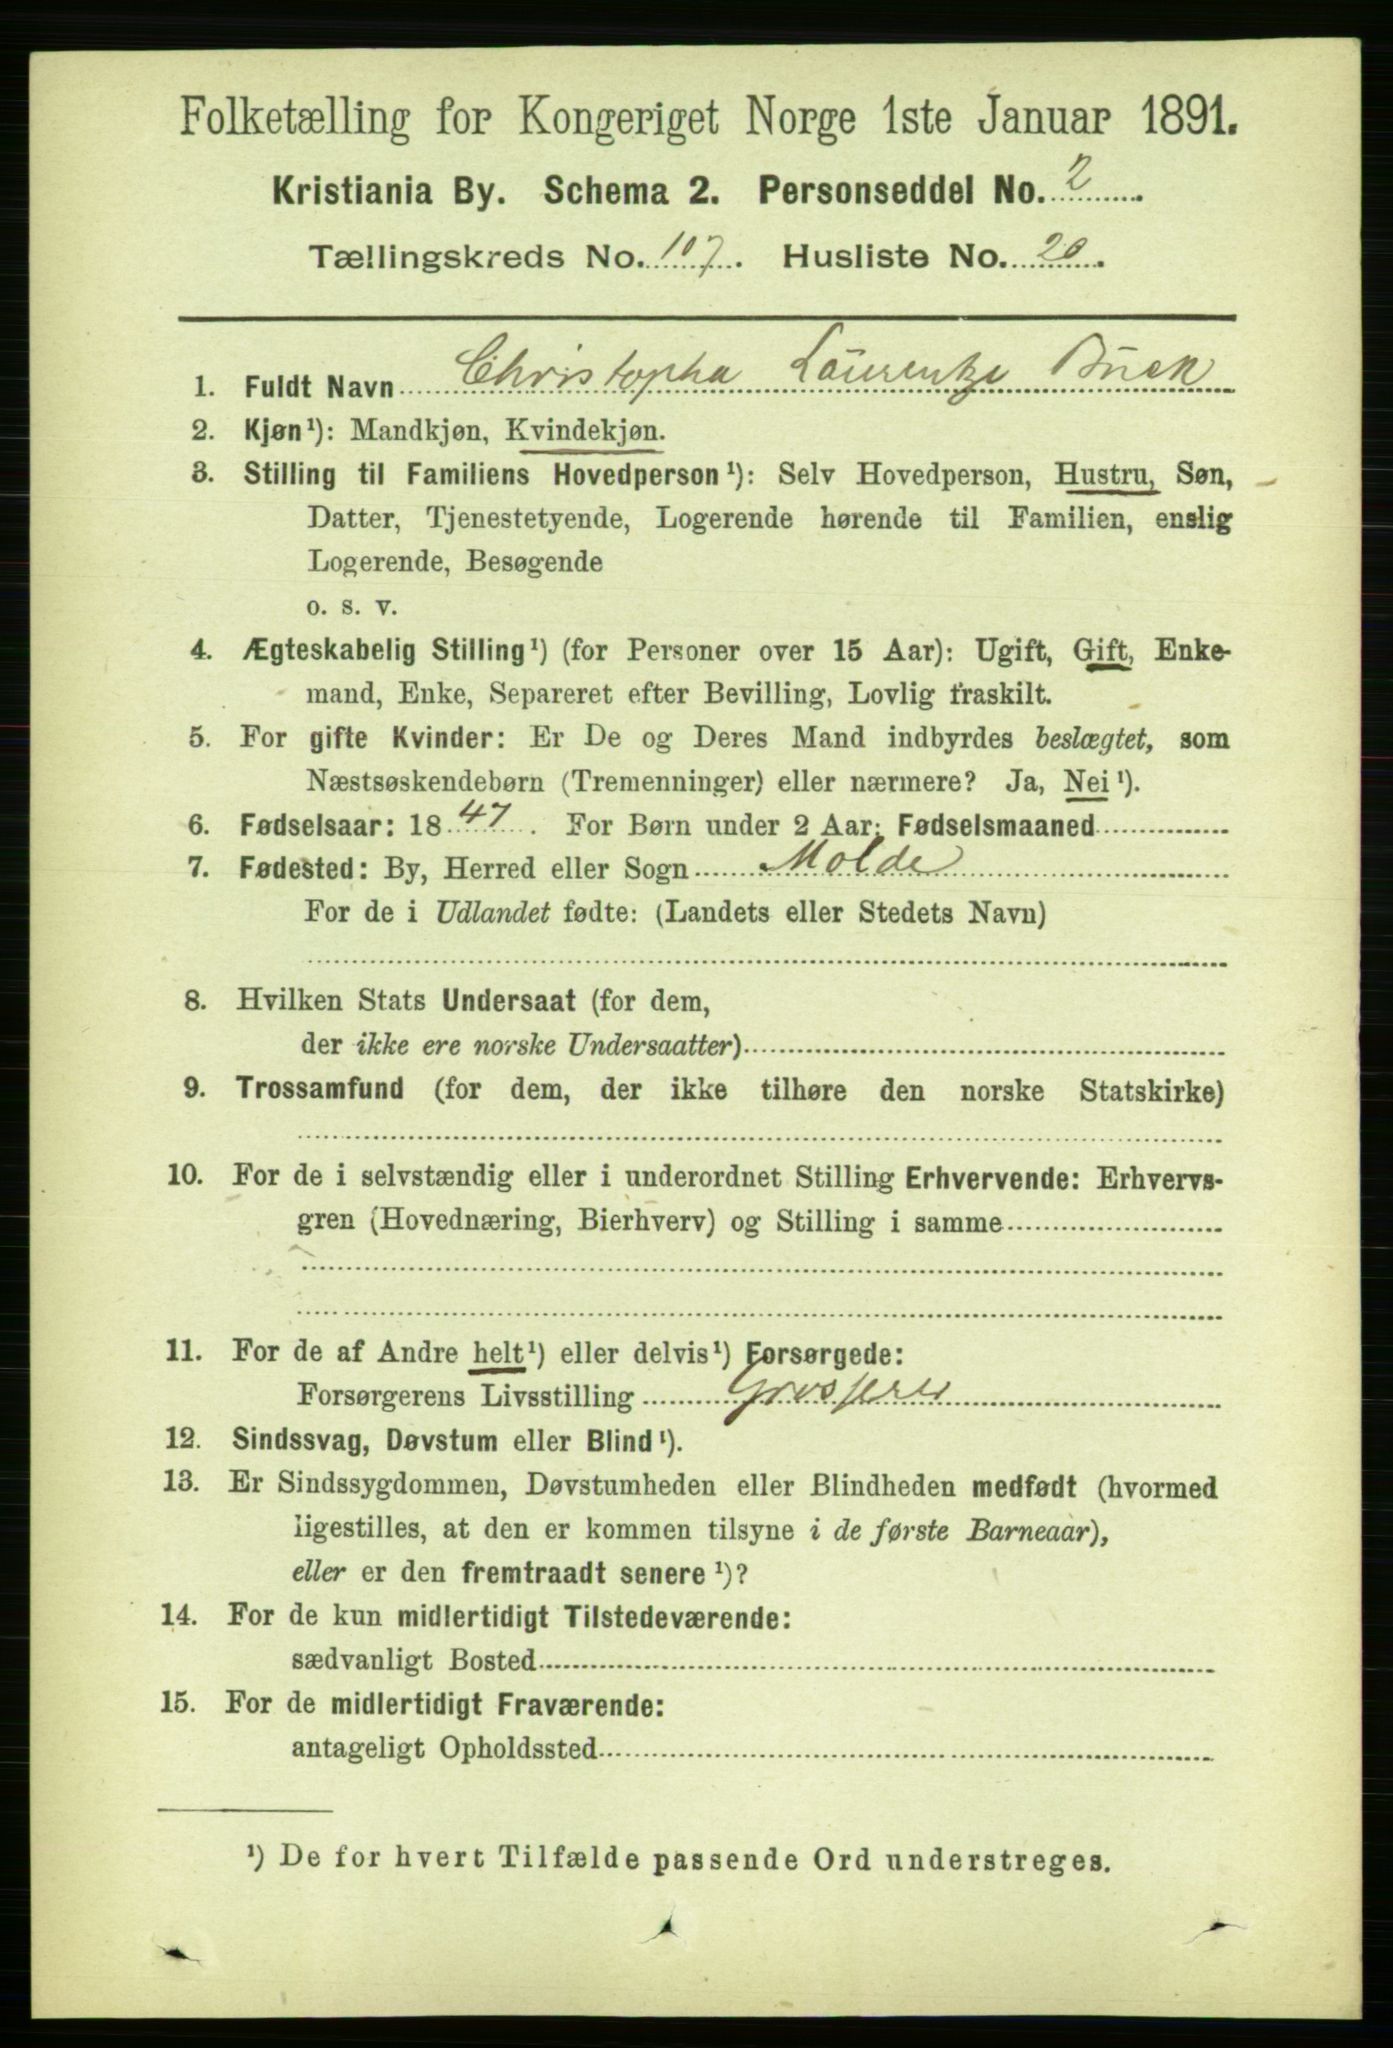 Folketælling for Kongeriget Norge 1ste Januar 1891.
Kristiania By. Schema 2. Personseddel No. 2
Tællingskreds No. 107. Husliste No. 20.
1. Fuldt Navn Christopha Laurentze Buck
2. Kjøn¹): Mandkjøn, Kvindekjøn.
3. Stilling til Familiens Hovedperson¹): Selv Hovedperson, Hustru, Søn,
Datter, Tjenestetyende, Logerende hørende til Familien, enslig
Logerende, Besøgende
o. s. v.
4. Ægteskabelig Stilling¹) (for Personer over 15 Aar): Ugift, Gift, Enke-
mand, Enke, Separeret efter Bevilling, Lovlig fraskilt.
5. For gifte Kvinder: Er De og Deres Mand indbyrdes beslægtet, som
Næstsøskendebørn (Tremenninger) eller nærmere? Ja, Nei¹).
6. Fødselsaar: 1847. For Børn under 2 Aar: Fødselsmaaned
7. Fødested: By, Herred eller Sogn Molde
For de i Udlandet fødte: (Landets eller Stedets Navn)
8. Hvilken Stats Undersaat (for dem,
der ikke ere norske Undersaatter)
9. Trossamfund (for dem, der ikke tilhøre den norske Statskirke)
10. For de i selvstændig eller i underordnet Stilling Erhvervende: Erhvervs-
gren (Hovednæring, Bierhverv) og Stilling i samme
11. For de af Andre helt¹) eller delvis¹) Forsørgede:
Forsørgerens Livsstilling Grosserer
12. Sindssvag, Døvstum eller Blind¹).
13. Er Sindssygdommen, Døvstumheden eller Blindheden medfødt (hvormed
ligestilles, at den er kommen tilsyne i de første Barneaar),
eller er den fremtraadt senere¹)?
14. For de kun midlertidigt Tilstedeværende:
sædvanligt Bosted
15. For de midlertidigt Fraværende:
antageligt Opholdssted
¹) De for hvert Tilfælde passende Ord understreges.